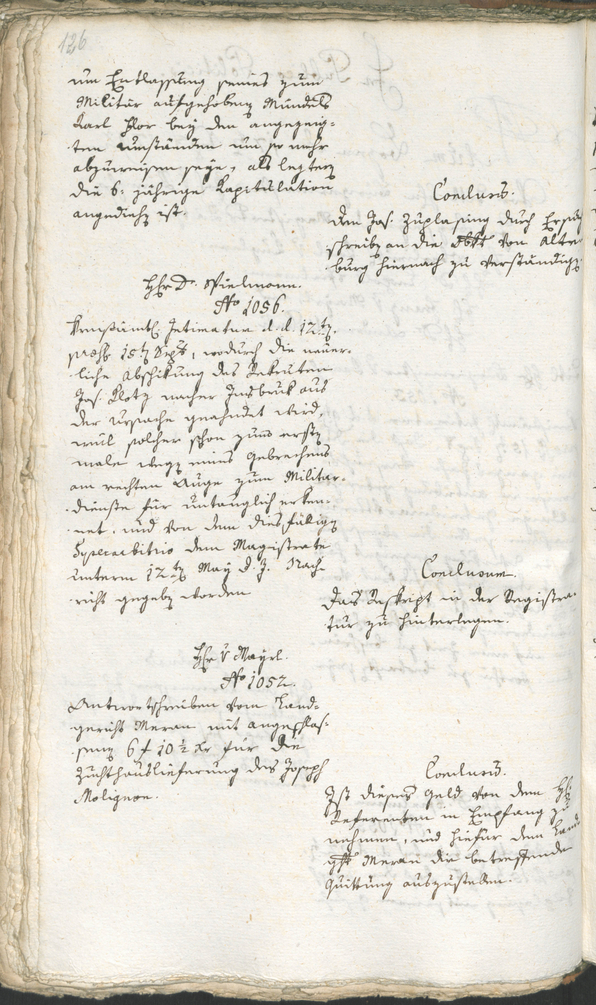 126
um Entlassung seines zum
Militär aufgehobenen Mündels
Karl Flor bey den angezeig-
ten Umständen um so mehr
abzuweisen seye, als letzterer
die 6: jährige Kapitulation
angediehen ist.
Conclus.
dem Jos. Zuplasing durch
schreiben an die Obkt von Alten-
burg hiernach zu verständigen.
Hhr Dr. Spielmann.
No 1056.
Kreisämtl. Intimatum d. d. 12ten
praes. 15ten Sept, wodurch die neuer-
liche Abschikung des Rekruten
Jos. Klotz nacher Insbruk aus
der Ursache geahndet wird,
weil solcher schon zum ersten
male wegen eines Gebrechens
am rechten Auge zum Militär-
dienste für untauglich erken-
net, und von dem diesfälligen
Superarbitrio dem Magistrate
unterm 12ten May d. J. Nach-
richt gegeben worden.
Conclusum.
Das Reskript in der Registra-
tur zu hinterlegen.
Hhr v Mayrl.
No 1052.
Antwortschreiben vom Land-
gericht Meran mit angeschlos-
senen 6 f 10 ½ Xr für die
Zuchthauslieferung des Joseph
Molignon.
Conclus.
Ist dieses Geld von dem Hh
Referenten in Empfang zu
nehmen, und hiefür dem Land-
gkt Meran die betreffende
Quittung auszustellen.